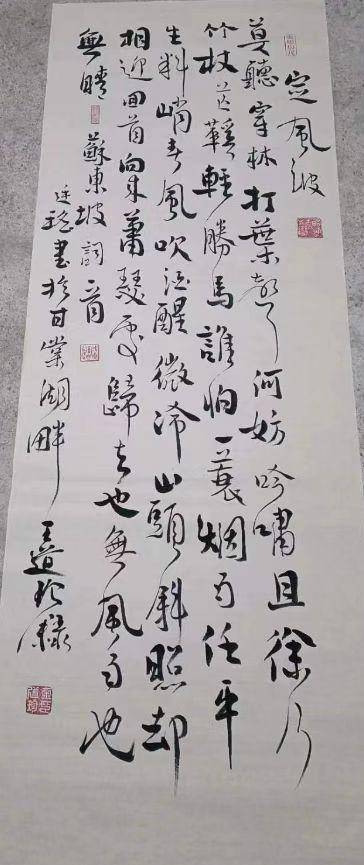 定風波
莫聽穿林打葉聲何妨吟嘯且徐行
竹杖芒鞵輕勝馬誰怕一蓑烟雨任平
生料峭春風吹酒醒微冷山頭斜照却
相迎回首向來蕭瑟處歸去也無風雨也
無晴 蘇東坡詞一首
書於甘棠湖畔
王道